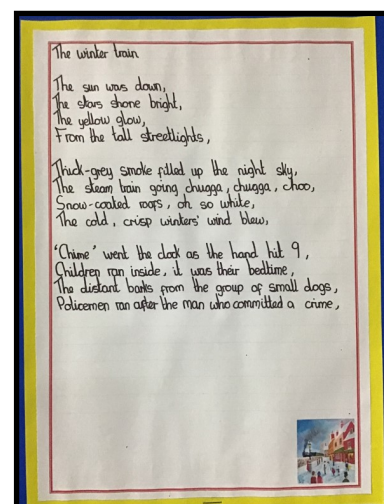 The winter train
The sun was down,
The stars shone bright,
The yellow glow,
From the tall streetlights,
Thick-grey smoke filled up the night sky,
The steam train going chugga, chugga, choo,
Snow-coated roofs, oh so white,
The cold, crisp winters' wind blew,
'Chime' went the clock as the hand hit 9,
Children ran inside, it was their bedtime,
The distant barks from the group of small dogs,
Policemen ran after the man who committed a crime,